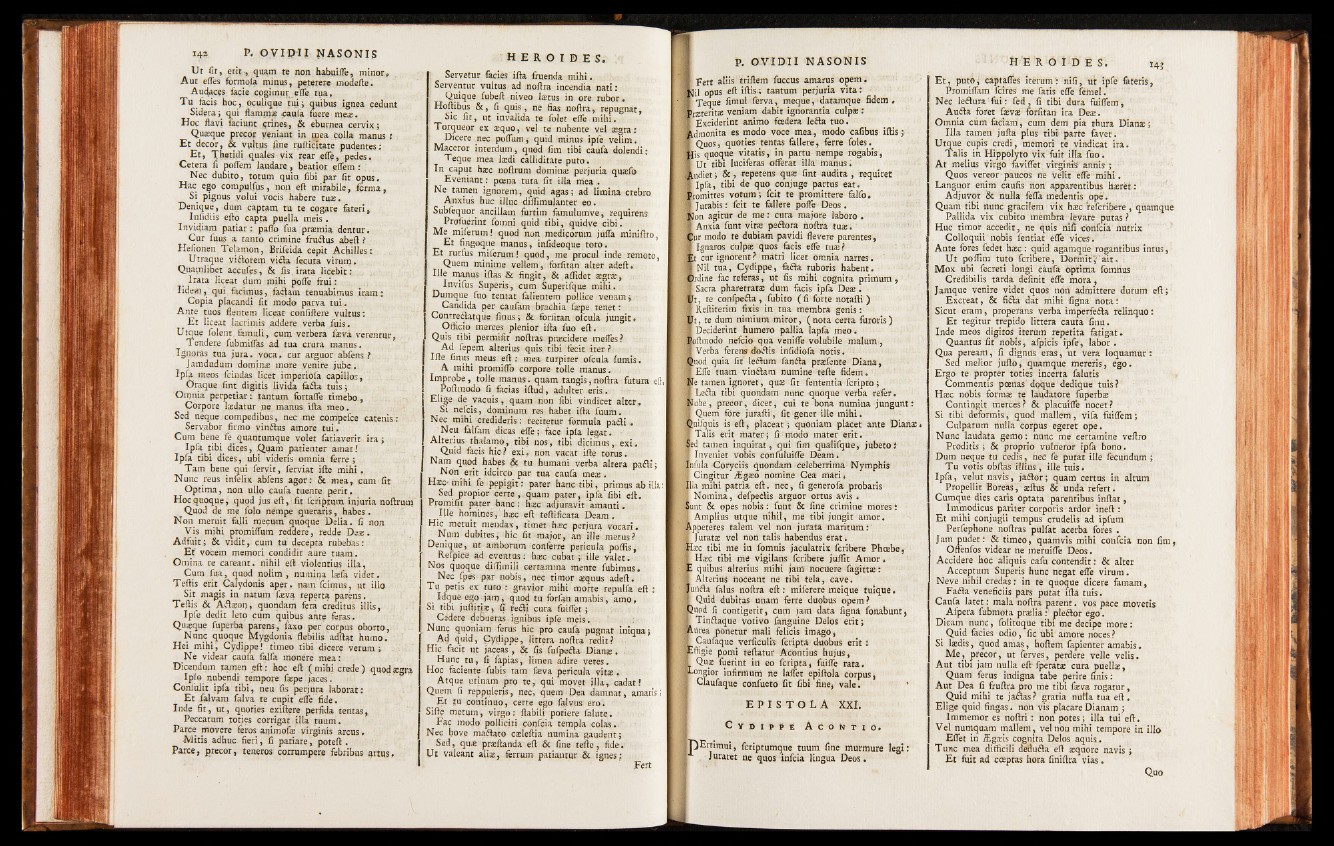 142 P. OVIDII NASONIS
Ut sit, erit, quam te non habuisse, minor.
Aut esses formosa minus, peterere modeste.
Audaces facie cogimur esse tua.
Tu facis hoc, oculique tui; quibus ignea cedunt
Sidera; qui flammæ causa fuere meæ.
Hoc flavi faciunt crines, & eburnea cervix;
Quæque precor veniant in mea colla manus:
Et decor, & vultus sine rusticitate pudentes:
Et, Thetidi quales vix rear esse, pedes.
Cetera si possem laudare, beatior essem:
Nec dubito, totum quin sibi par sit opus.
Hac ego compulsus, non est mirabile, forma,
Si pignus volui vocis habere tuæ.
Denique, dum captam tu te cogare fateri,
Insidiis esto capta puella meis.
Invidiam patiar: passo sua præmia dentur.
Cur suus a tanto crimine fructus abest?
Hesionen Telamon, Briseida cepit Achilles:
Utraque victorem victa secuta virum.
Quamlibet accuses, & sis irata licebit:
Irata liceat dum mihi posse frui:
Iidem, qui facimus, factam tenuabimus iram:
Copia placandi sit modo parva tui.
Ante tuos flentem liceat consistere vultus:
Et liceat lacrimis addere verba suis.
Utque solent famuli, cum verbera sæva verentur,
Tendere submissas ad tua crura manus.
Ignoras tua jura. voca. cur arguor absens?
Jamdudum dominæ more venire jube.
Ipsa meos scindas licet imperiosa capillos,
Oraque sint digitis livida facta tuis;
Omnia perpetiar: tantum fortasse timebo,
Corpore lædatur ne manus ista meo.
Sed neque compedibus, nec me compesce catenis:
Servabor firmo vinctus amore tui.
Cum bene se quantumque volet satiaverit ira;
Ipsa tibi dices, Quam patienter amat!
Ipsa tibi dices, ubi videris omnia ferre;
Tam bene qui servit, serviat iste mihi.
Nunc reus infelix absens agor: & mea, cum sit
Optima, non ullo causa tuente perit.
Hoc quoque, quod jus est, sit scriptum injuria nostrum
Quod de me solo nempe queraris, habes.
Non meruit falli mecum quoque Delia. si non
Vis mihi promissum reddere, redde Deæ.
Adfuit; & vidit, cum tu decepta rubebas:
Et vocem memori condidit aure tuam.
Omina re careant. nihil est violentius illa,
Cum sua, quod nolim, numina læsa videt.
Testis erit Calydonis aper. nam scimus, ut illo
Sit magis in natum sæva reperta parens.
Testis & Actæon, quondam fera creditus illis,
Ipse dedit leto cum quibus ante feras.
Quæque superba parens, saxo per corpus oborto,
Nunc quoque Mygdonia flebilis adstat humo.
Hei mihi, Cydippe! timeo tibi dicere verum;
Ne videar causa falsa monere mea:
Dicendum tamen est: hoc est (mihi crede) quod ægra
Ipso nubendi tempore sæpe jaces.
Consulit ipsa tibi, neu sis perjura laborat:
Et salvam salva te cupit esse fide.
Inde fit, ut, quoties existere perfida tentas,
Peccatum toties corrigat illa tuum.
Parce movere feros animosæ virginis arcus.
Mitis adhuc fieri, si patiare, potest.
Parce, precor, teneros corrumpere febribus artus.
HEROIDES.
Servetur facies ista fruenda mihi.
Serventur vultus ad nostra incendia nati:
Quique subest niveo lætus in ore rubor.
Hostibus &, si quis, ne fias nostra, repugnat,
Sic sit, ut invalida te solet esse mihi.
Torqueor ex æquo, vel te nubente vel ægra:
Dicere nec possum, quid minus ipse velim.
Maceror interdum, quod sim tibi causa dolendi:
Teque mea lædi calliditate puto.
In caput hæc nostrum dominæ perjuria quæso
Eveniant: pœna tuta sit illa mea.
Ne tamen ignorem, quid agas; ad limina crebro
Anxius huc illuc dissimulanter eo.
Subsequor ancillam furtim famulumve, requirens
Profuerint somni quid tibi, quidve cibi.
Me miserum! quod non medicorum jussa ministro,
Et fingoque manus, insideoque toro.
Et rursus miserum! quod, me procul inde remoto,
Quem minime vellem, forsitan alter adest.
Ille manus istas & fingit, & assidet ægræ,
Invisus Superis, cum Superisque mihi.
Dumque suo tentat salientem pollice venam;
Candida per causam brachia sæpe tenet:
Contrectatque sinus; & forsitan oscula jungit.
Officio merces plenior ista suo est.
Quis tibi permisit nostras præcidere messes?
Ad sepem alterius quis tibi fecit iter?
Iste sinus meus est: mea turpiter oscula sumis.
A mihi promisso corpore tolle manus.
Improbe, tolle manus. quam tangis, nostra futura est.
Postmodo si facias istud, adulter eris.
Elige de vacuis, quam non sibi vindicet alter.
Si nescis, dominum res habet ista suum.
Nec mihi credideris: recitetur formula pacti.
Neu falsam dicas esse; face ipsa legat.
Alterius thalamo, tibi nos, tibi dicimus, exi.
Quid facis hic? exi. non vacat iste torus.
Nam quod habes & tu humani verba altera pacti;
Non erit idcirco par tua causa meæ.
Hæc mihi se pepigit: pater hanc tibi, primus ab illa:
Sed propior certe, quam pater, ipsa sibi est.
Promisit pater hanc: hæc adjuravit amanti.
Ille homines, hæc est testificata Deam.
Hic metuit mendax, timet hæc perjura vocari.
Num dubites, hic sit major, an ille metus?
Denique, ut amborum conferre pericula possis,
Respice ad eventus: hæc cubat; ille valet.
Nos quoque dissimili certamina mente subimus.
Nec spes par nobis, nec timor æquus adest.
Tu petis ex tuto: gravior mihi morte repulsa est:
Idque ego jam, quod tu forsan amabis, amo.
Si tibi justitiæ, si recti cura fuisset;
Cedere debueras ignibus ipse meis.
Nunc quoniam ferus hic pro causa pugnat iniqua;
Ad quid, Cydippe, littera nostra redit?
Hic facit ut jaceas, & sis suspecta Dianæ.
Hunc tu, si sapias, limen adire veres.
Hoc faciente subis tam sæva pericula vitæ.
Atque utinam pro te, qui movet illa, cadat!
Quem si reppuleris, nec, quem Dea damnat, amaris;
Et tu continuo, certe ego salvus ero.
Siste metum, virgo: stabili potiere salute.
Fac modo polliciti conscia templa colas.
Nec bove mactato cælestia numina gaudent;
Sed, quæ præstanda est & sine teste, fide.
Ut valeant aliæ, ferrum patiantur & ignes;
Fert
P. OVIDII NASONIS
Fert aliis tristem succus amarus opem.
Nil opus est istis; tantum perjuria vita:
Teque simul serva, meque, datamque fidem.
Præteritæ veniam dabit ignorantia culpæ:
Exciderint animo fœdera lecta tuo.
Admonita es modo voce mea, modo casibus istis;
Quos, quoties tentas fallere, ferre soles.
His quoque vitatis, in partu nempe rogabis,
Ut tibi luciferas offerat illa manus.
Audiet; &, repetens quæ sint audita, requiret
Ipsa, tibi de quo conjuge partus eat.
Promittes votum; scit te promittere falso.
Jurabis: scit te fallere posse Deos.
Non agitur de me: cura majore laboro.
Anxia sunt vitæ pectora nostra tuæ.
Cur modo te dubiam pavidi flevere parentes,
Ignaros culpæ quos facis esse tuæ?
Et cur ignorent? matri licet omnia narres.
Nil tua, Cydippe, facta ruboris habent.
Ordine fac referas, ut sis mihi cognita primum,
Sacra pharetratæ dum facis ipsa Deæ.
Ut, te conspecta, subito (si forte notasti)
Restiterim fixis in tua membra genis:
Ut, te dum nimium miror, (nota certa furoris)
Deciderint humero pallia lapsa meo.
Postmodo nescio qua venisse volubile malum,
Verba ferens doctis insidiosa notis.
Quod quia sit lectum sancta præsente Diana,
Esse tuam vinctam numine teste fidem.
Ne tamen ignoret, quæ sit sententia scripto;
Lecta tibi quondam nunc quoque verba refer.
Nube, precor, dicet, cui te bona numina jungunt:
Quem fore jurasti, sit gener ille mihi.
Quilquis is est, placeat; quoniam placet ante Dianæ.
Talis erit mater; si modo mater erit.
Sed tamen inquirat, qui sim qualisque, jubeto:
Inveniet vobis consuluisse Deam.
Insula Coryciis quondam celeberrima Nymphis
Cingitur Ægæo nomine Cea mari.
Illa mihi patria est. nec, si generosa probaris
Nomina, despectis arguor ortus avis.
Sunt & opes nobis: sunt & sine crimine mores:
Amplius utque nihil, me tibi jungit amor.
Appeteres talem vel non jurata maritum:
Juratæ vel non talis habendus erat.
Hæc tibi me in somnis jaculatrix scribere Phœbe,
Hæc tibi me vigilans scribere jussit Amor.
E quibus alterius mihi jam nocuere sagittæ:
Alterius noceant ne tibi tela, cave.
Juncta salus nostra est: miserere meique tuique.
Quid dubitas unam ferre duobus opem?
Quod si contigerit, cum jam data signa sonabunt,
Tinctaque votivo sanguine Delos erit;
Aurea ponetur mali felicis imago,
Causaque versiculis scripta duobus erit:
Effigie pomi testatur Acontius hujus,
Quæ fuerint in eo scripta, fuisse rata.
Longior infirmum ne lasset epistola corpus,
Clausaque consueto sit sibi fine, vale.
EPISTOLA XXI.
CYDIPPE ACONTIO.
PErtimui, scriptumque tuum sine murmure legi:
Juraret ne quos inscia lingua Deos.
HEROIDES. 143
Et, puto, captasses iterum: nisi, ut ipse fateris,
Promissam scires me satis esse semel.
Nec lectura fui: sed, si tibi dura fuissem,
Aucta foret sævæ forsitan ira Deæ.
Omnia cum faciam, cum dem pia thura Dianæ;
Illa tamen justa plus tibi parte favet.
Utque cupis credi, memori te vindicat ira.
Talis in Hippolyto vix fuit illa suo.
At melius virgo favisset virginis annis;
Quos vereor paucos ne velit esse mihi.
Languor enim causis non apparentibus hæret:
Adjuvor & nulla fessa medentis ope.
Quam tibi nunc gracilem vix hæc rescribere, quamque
Pallida vix cubito membra levare putas?
Huc timor accedit, ne quis nisi conscia nutrix
Colloquii nobis sentiat esse vices.
Ante fores sedet hæc: quid agamque rogantibus intus,
Ut possim tuto scribere, Dormit, ait.
Mox ubi secreti longi causa optima somnus
Credibilis tarda desinit esse mora,
Jamque venire videt quos non admittere durum est;
Excreat, & ficta dat mihi signa nota:
Sicut eram, properans verba imperfecta relinquo:
Et tegitur trepido littera cauta sinu.
Inde meos digitos iterum repetita fatigat.
Quantus sit nobis, aspicis ipse, labor.
Qua peream, si dignus eras, ut vera loquamur:
Sed melior justo, quamque mereris, ego.
Ergo te propter toties incerta salutis
Commentis pœnas doque dedique tuis?
Hæc nobis formæ te laudatore superbæ
Contingit merces? & placuisse nocet?
Si tibi deformis, quod mallem, visa fuissem;
Culpatum nulla corpus egeret ope.
Nunc laudata gemo: nunc me certamine vestro
Proditis; & proprio vulneror ipsa bono.
Dum neque tu cedis, nec se putat ille secundum;
Tu votis obstas illius, ille tuis.
Ipsa, velut navis, jactor; quam certus in altum
Propellit Boreas, æstus & unda refert.
Cumque dies caris optata parentibus instat,
Immodicus pariter corporis ardor inest:
Et mihi conjugii tempus crudelis ad ipsum
Persephone nostras pulsat acerba fores.
Jam pudet: & timeo, quamvis mihi conscia non sim,
Offensos videar ne meruisse Deos.
Accidere hoc aliquis casu contendit: & alter
Acceptum Superis hunc negat esse virum.
Neve nihil credas: in te quoque dicere famam,
Facta veneficiis pars putat ista tuis.
Causa latet: mala nostra parent. vos pace movetis
Aspera submota prælia: plector ego.
Dicam nunc, solitoque tibi me decipe more:
Quid facies odio, sic ubi amore noces?
Si lædis, quod amas, hostem sapienter amabis.
Me, precor, ut serves, perdere velle velis.
Aut tibi jam nulla est speratæ cura puellæ,
Quam ferus indigna tabe perire sinis:
Aut Dea si frustra pro me tibi sæva rogatur,
Quid mihi te jactas? gratia nulla tua est.
Elige quid fingas. non vis placare Dianam;
Immemor es nostri: non potes; illa tui est.
Vel numquam mallem, vel non mihi tempore in illo
Esset in Ægæis cognita Delos aquis.
Tunc mea difficili deducta est æquore navis;
Et fuit ad cœptas hora sinistra vias.
Quo